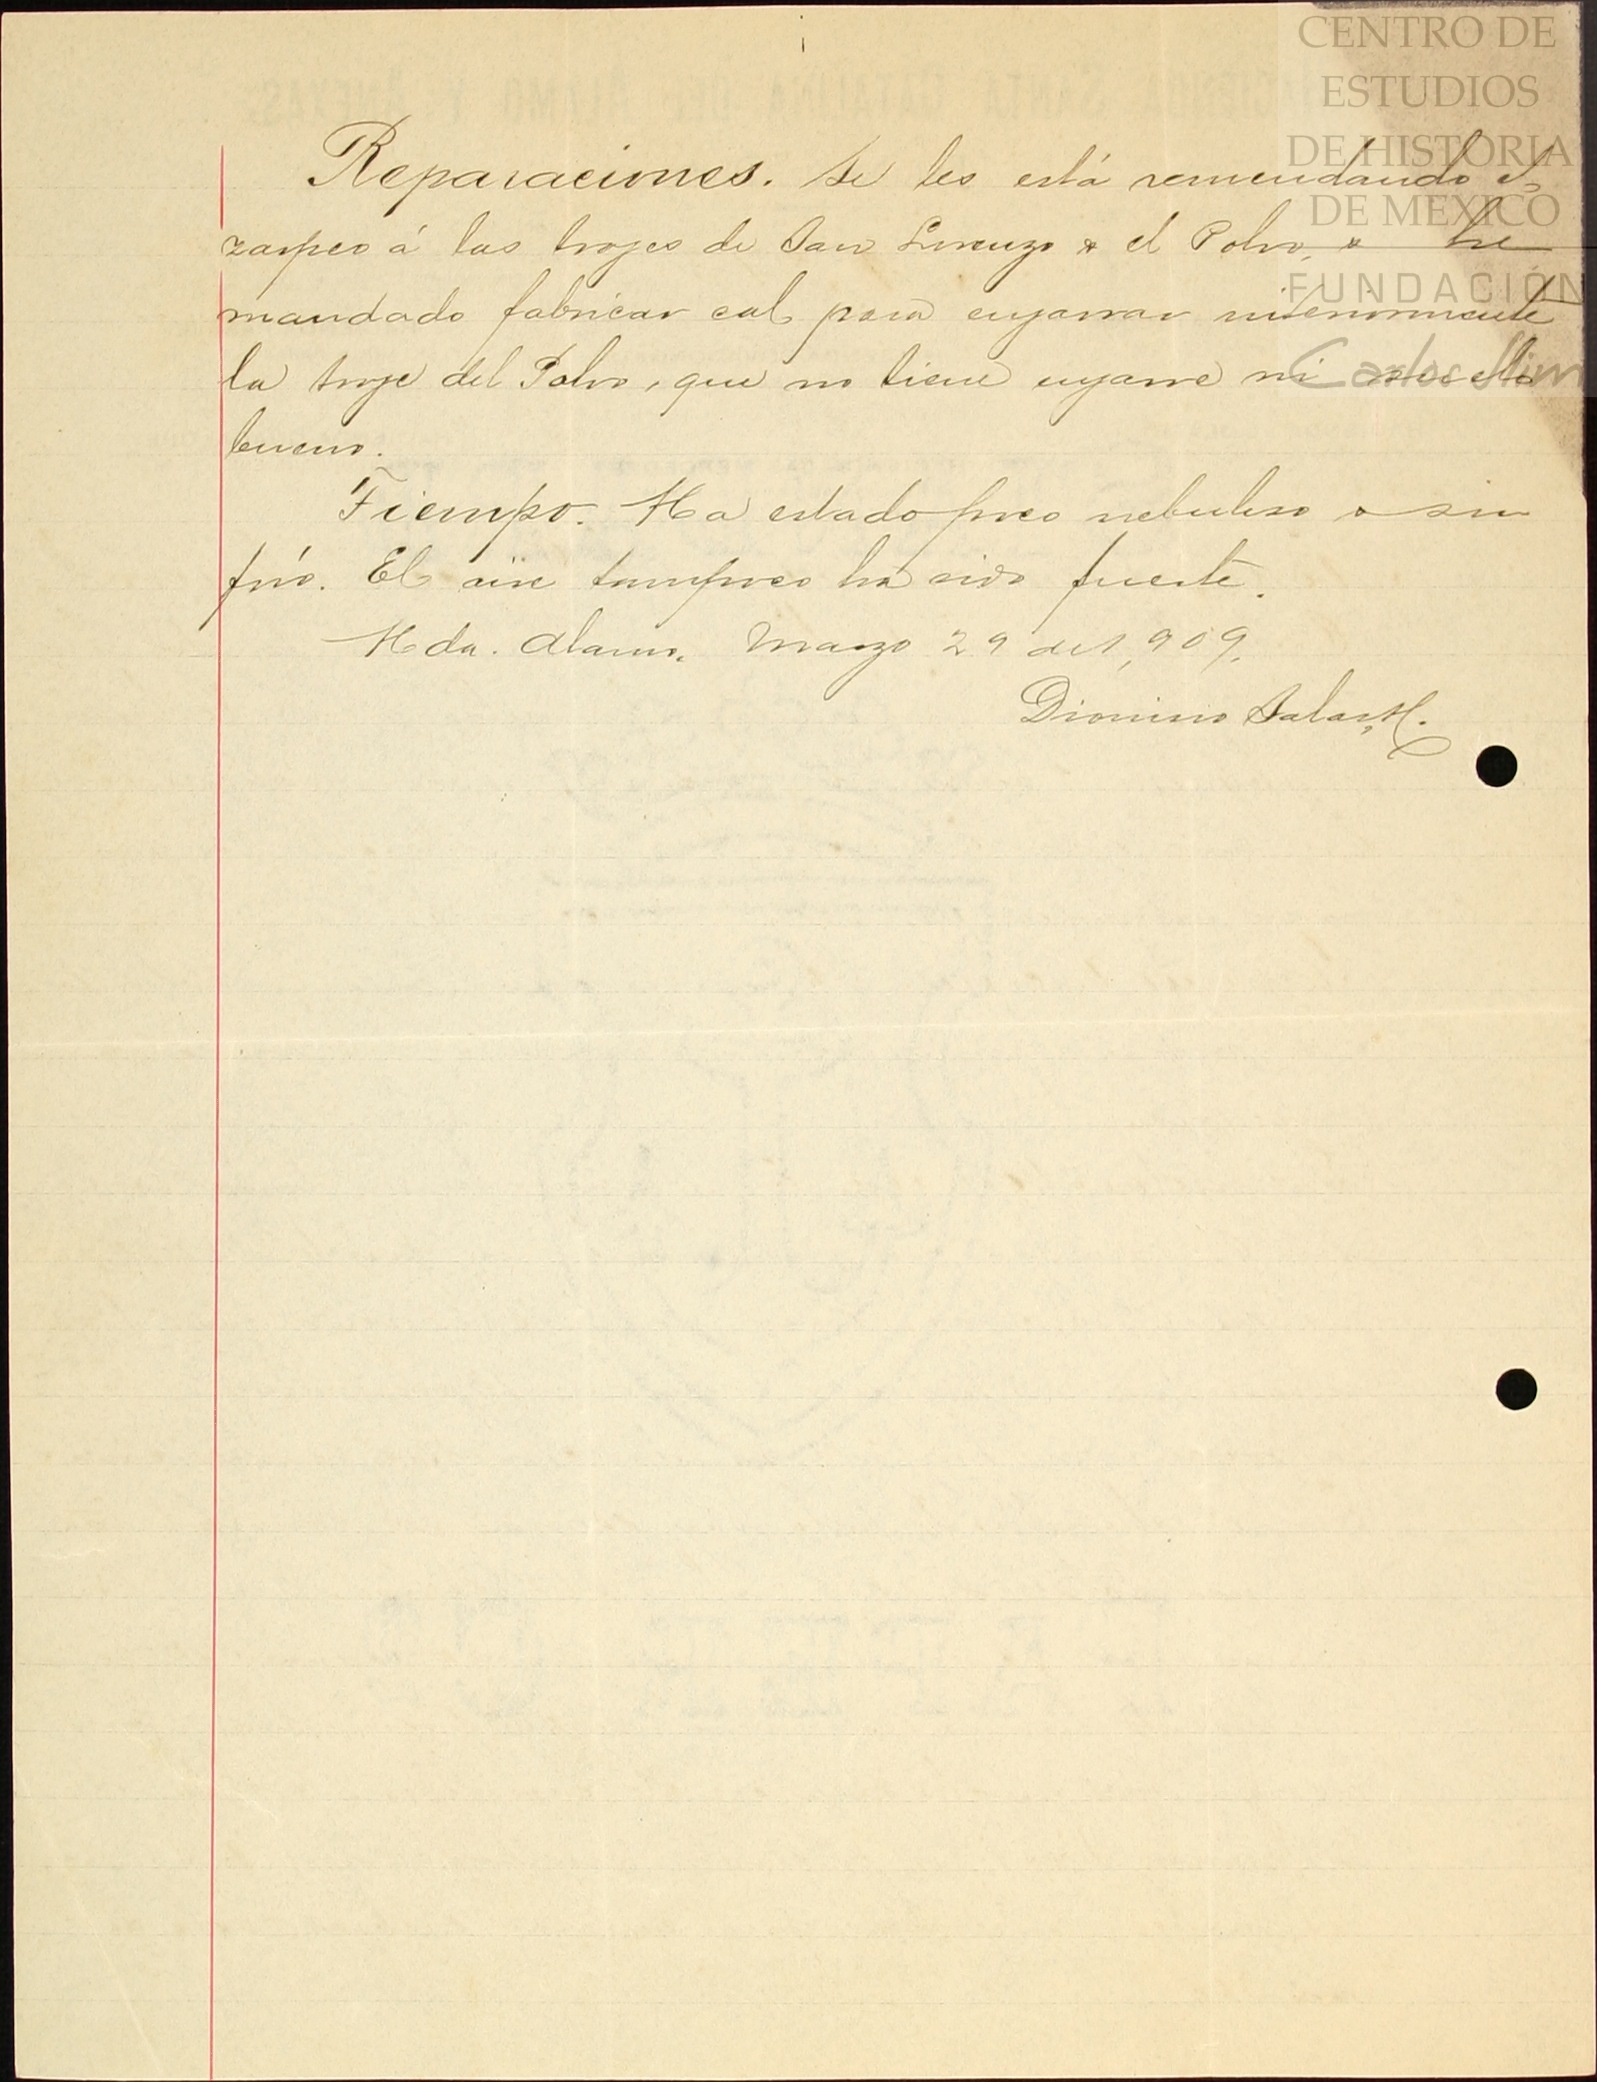 CENTRO DE
ESTUDIOS
DE HISTORIA
DE MEXICO
FUNDACIÓN
Carlos Slim
Reparaciones. Se les está remendando el
zarpeo á las trojes de San Lorenzo y el Polvo, y he
mandado fabricar cal para enjarrar interiormente
la troje del Polvo, que no tiene enjarre ni
bueno.
Tiempo. Ha estado poco nebuloso y sin
frío. El aire tampoco ha sido fuerte.
Hda. Alamo. Marzo 29 de 1,909.
Dionisio Salas H.